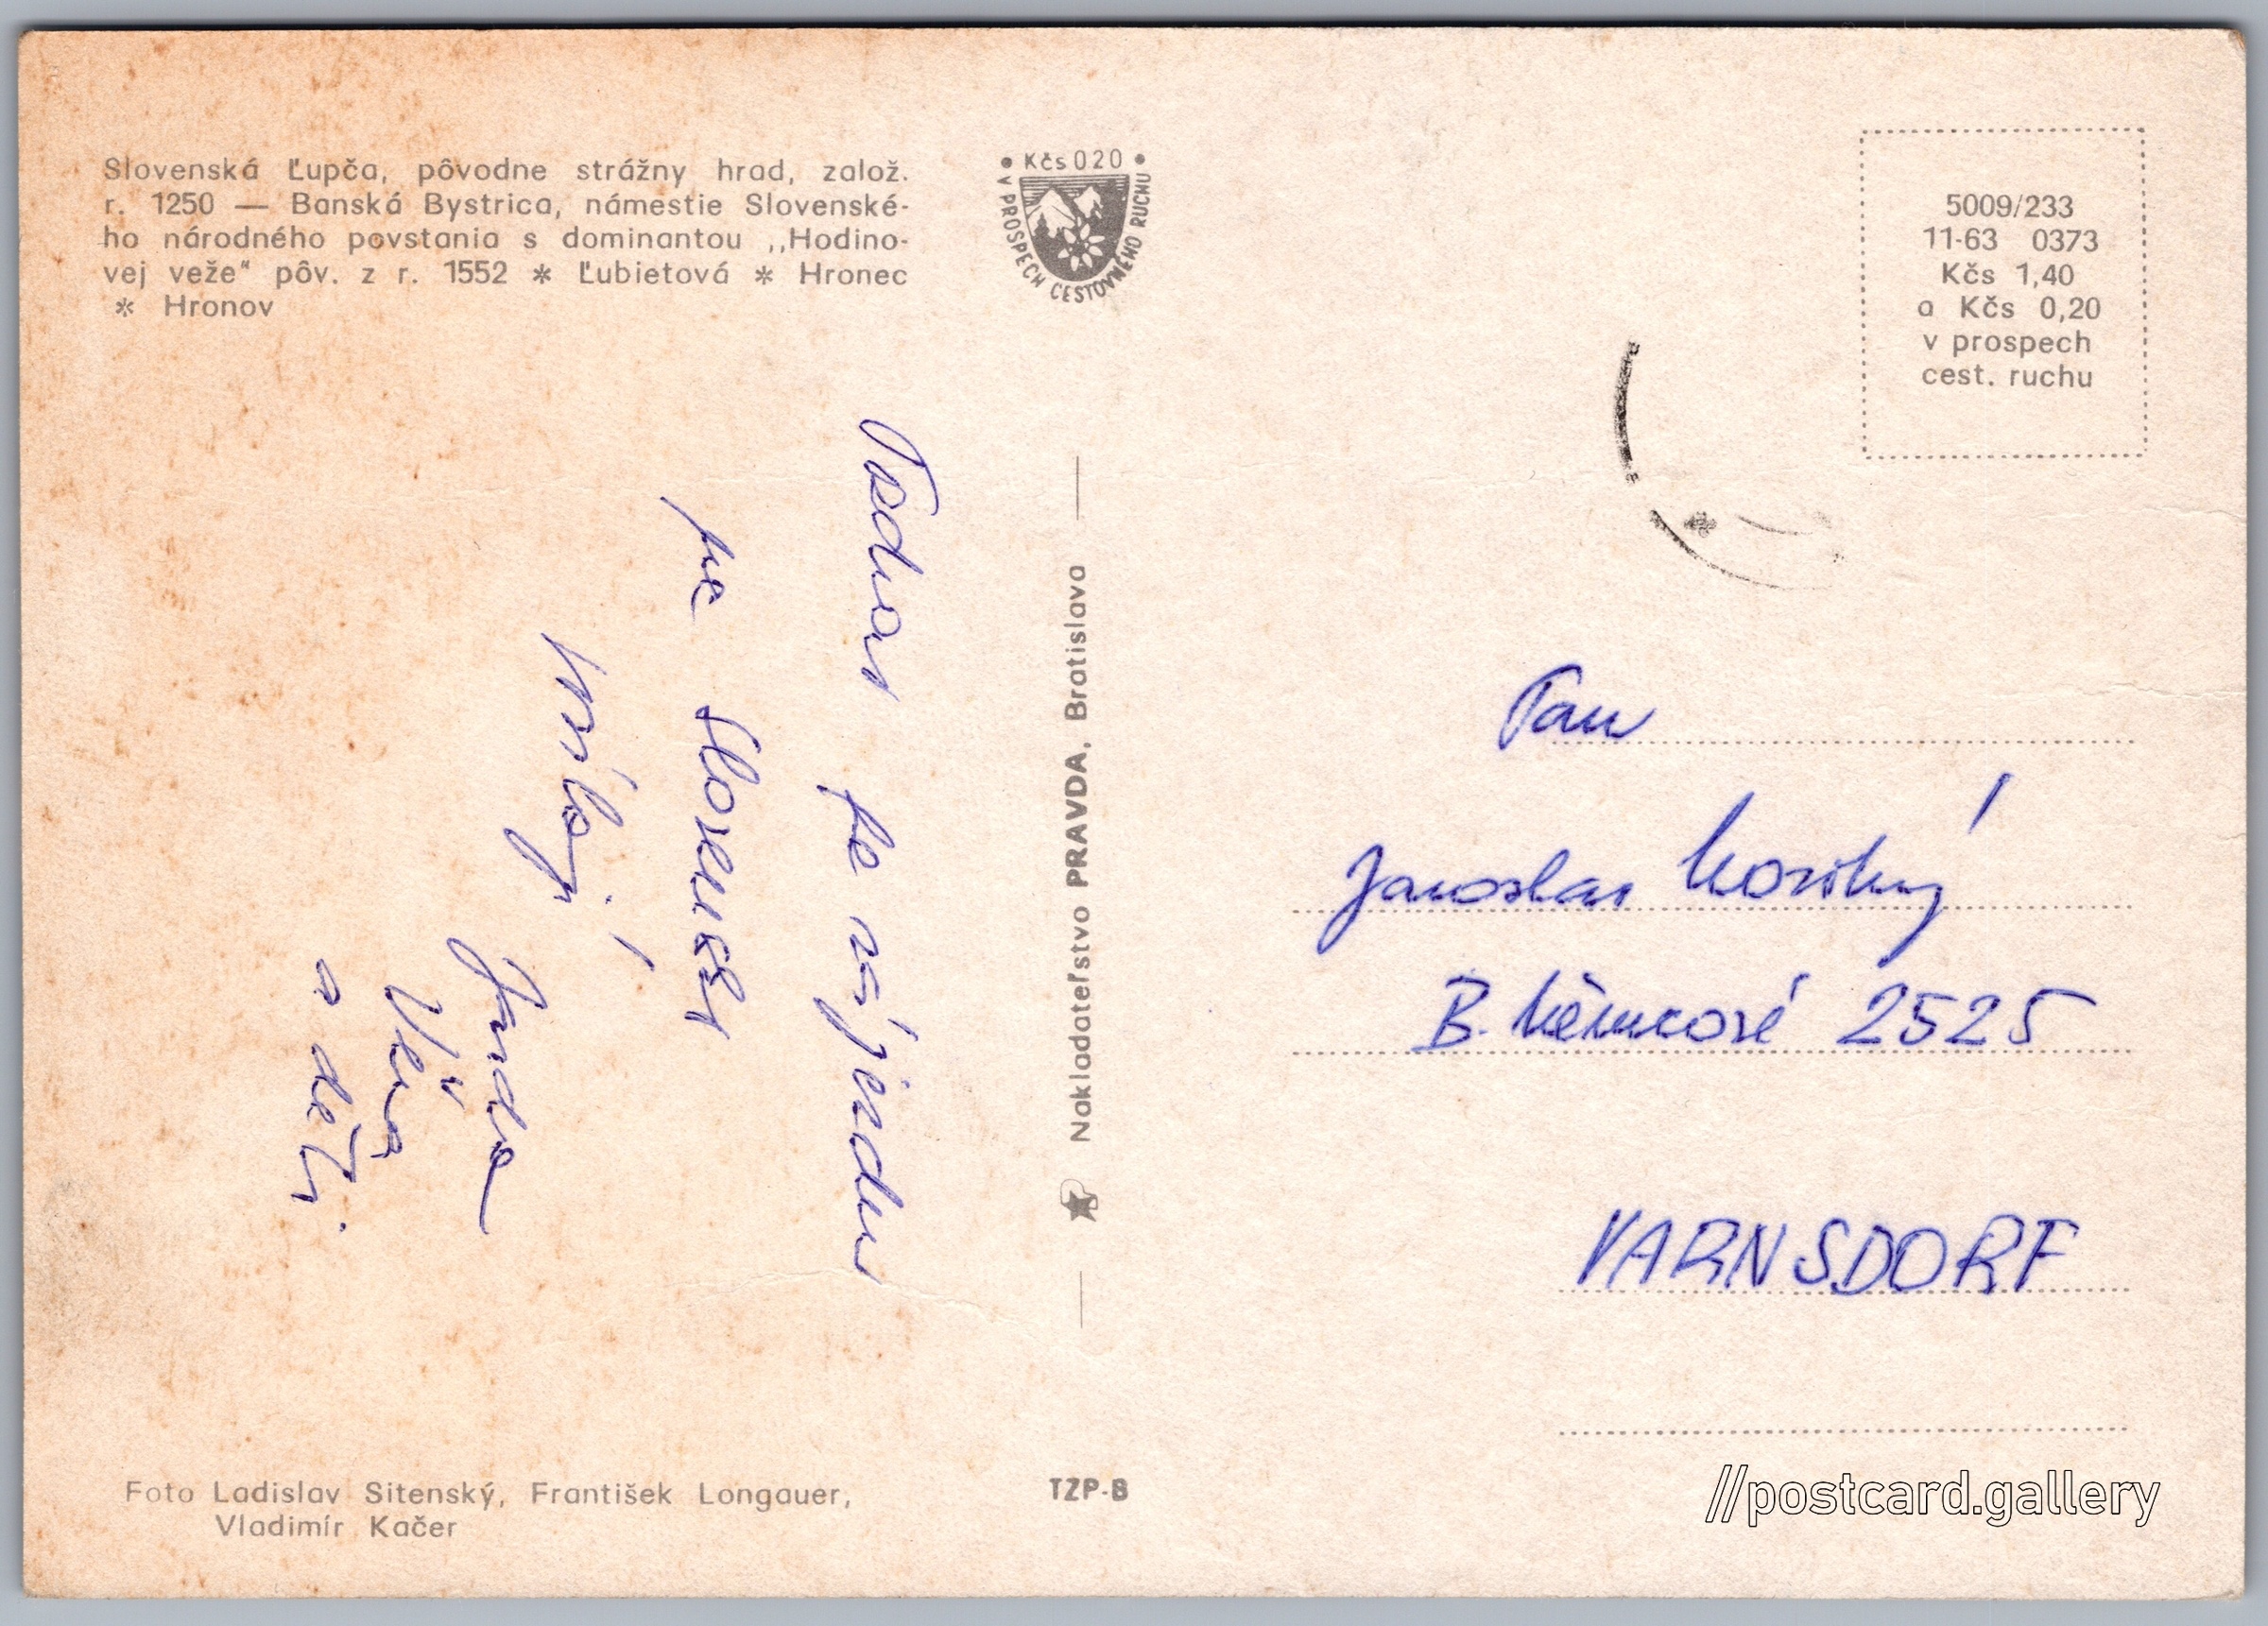 Slovenská Ľupča, pôvodne strážny hrad, založ.
r. 1250 — Banská Bystrica, námestie Slovenské-
ho národného povstania s dominantou ,,Hodino-
vej veže" pôv. z r. 1552 * Ľubietová * Hronec
* Hronov
• Kčs 020 •
V PROSPECH CESTOVNÉHO RUCHU
5009/233
11-63 0373
Kčs 1,40
a Kčs 0,20
v prospech
cest. ruchu
Pozdrav ze
na Slovensku
Jarda
Věra
a děti
Nakladateľstvo PRAVDA, Bratislava
Pan
Jaroslav
B. Němcové 2525
VARNSDORF
Foto Ladislav Sitenský, František Longauer,
Vladimír Kačer
TZP-B
//postcard.gallery